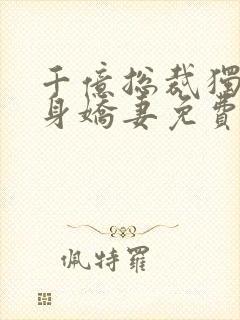 千億總裁獨
身嬌妻免費
佩特羅